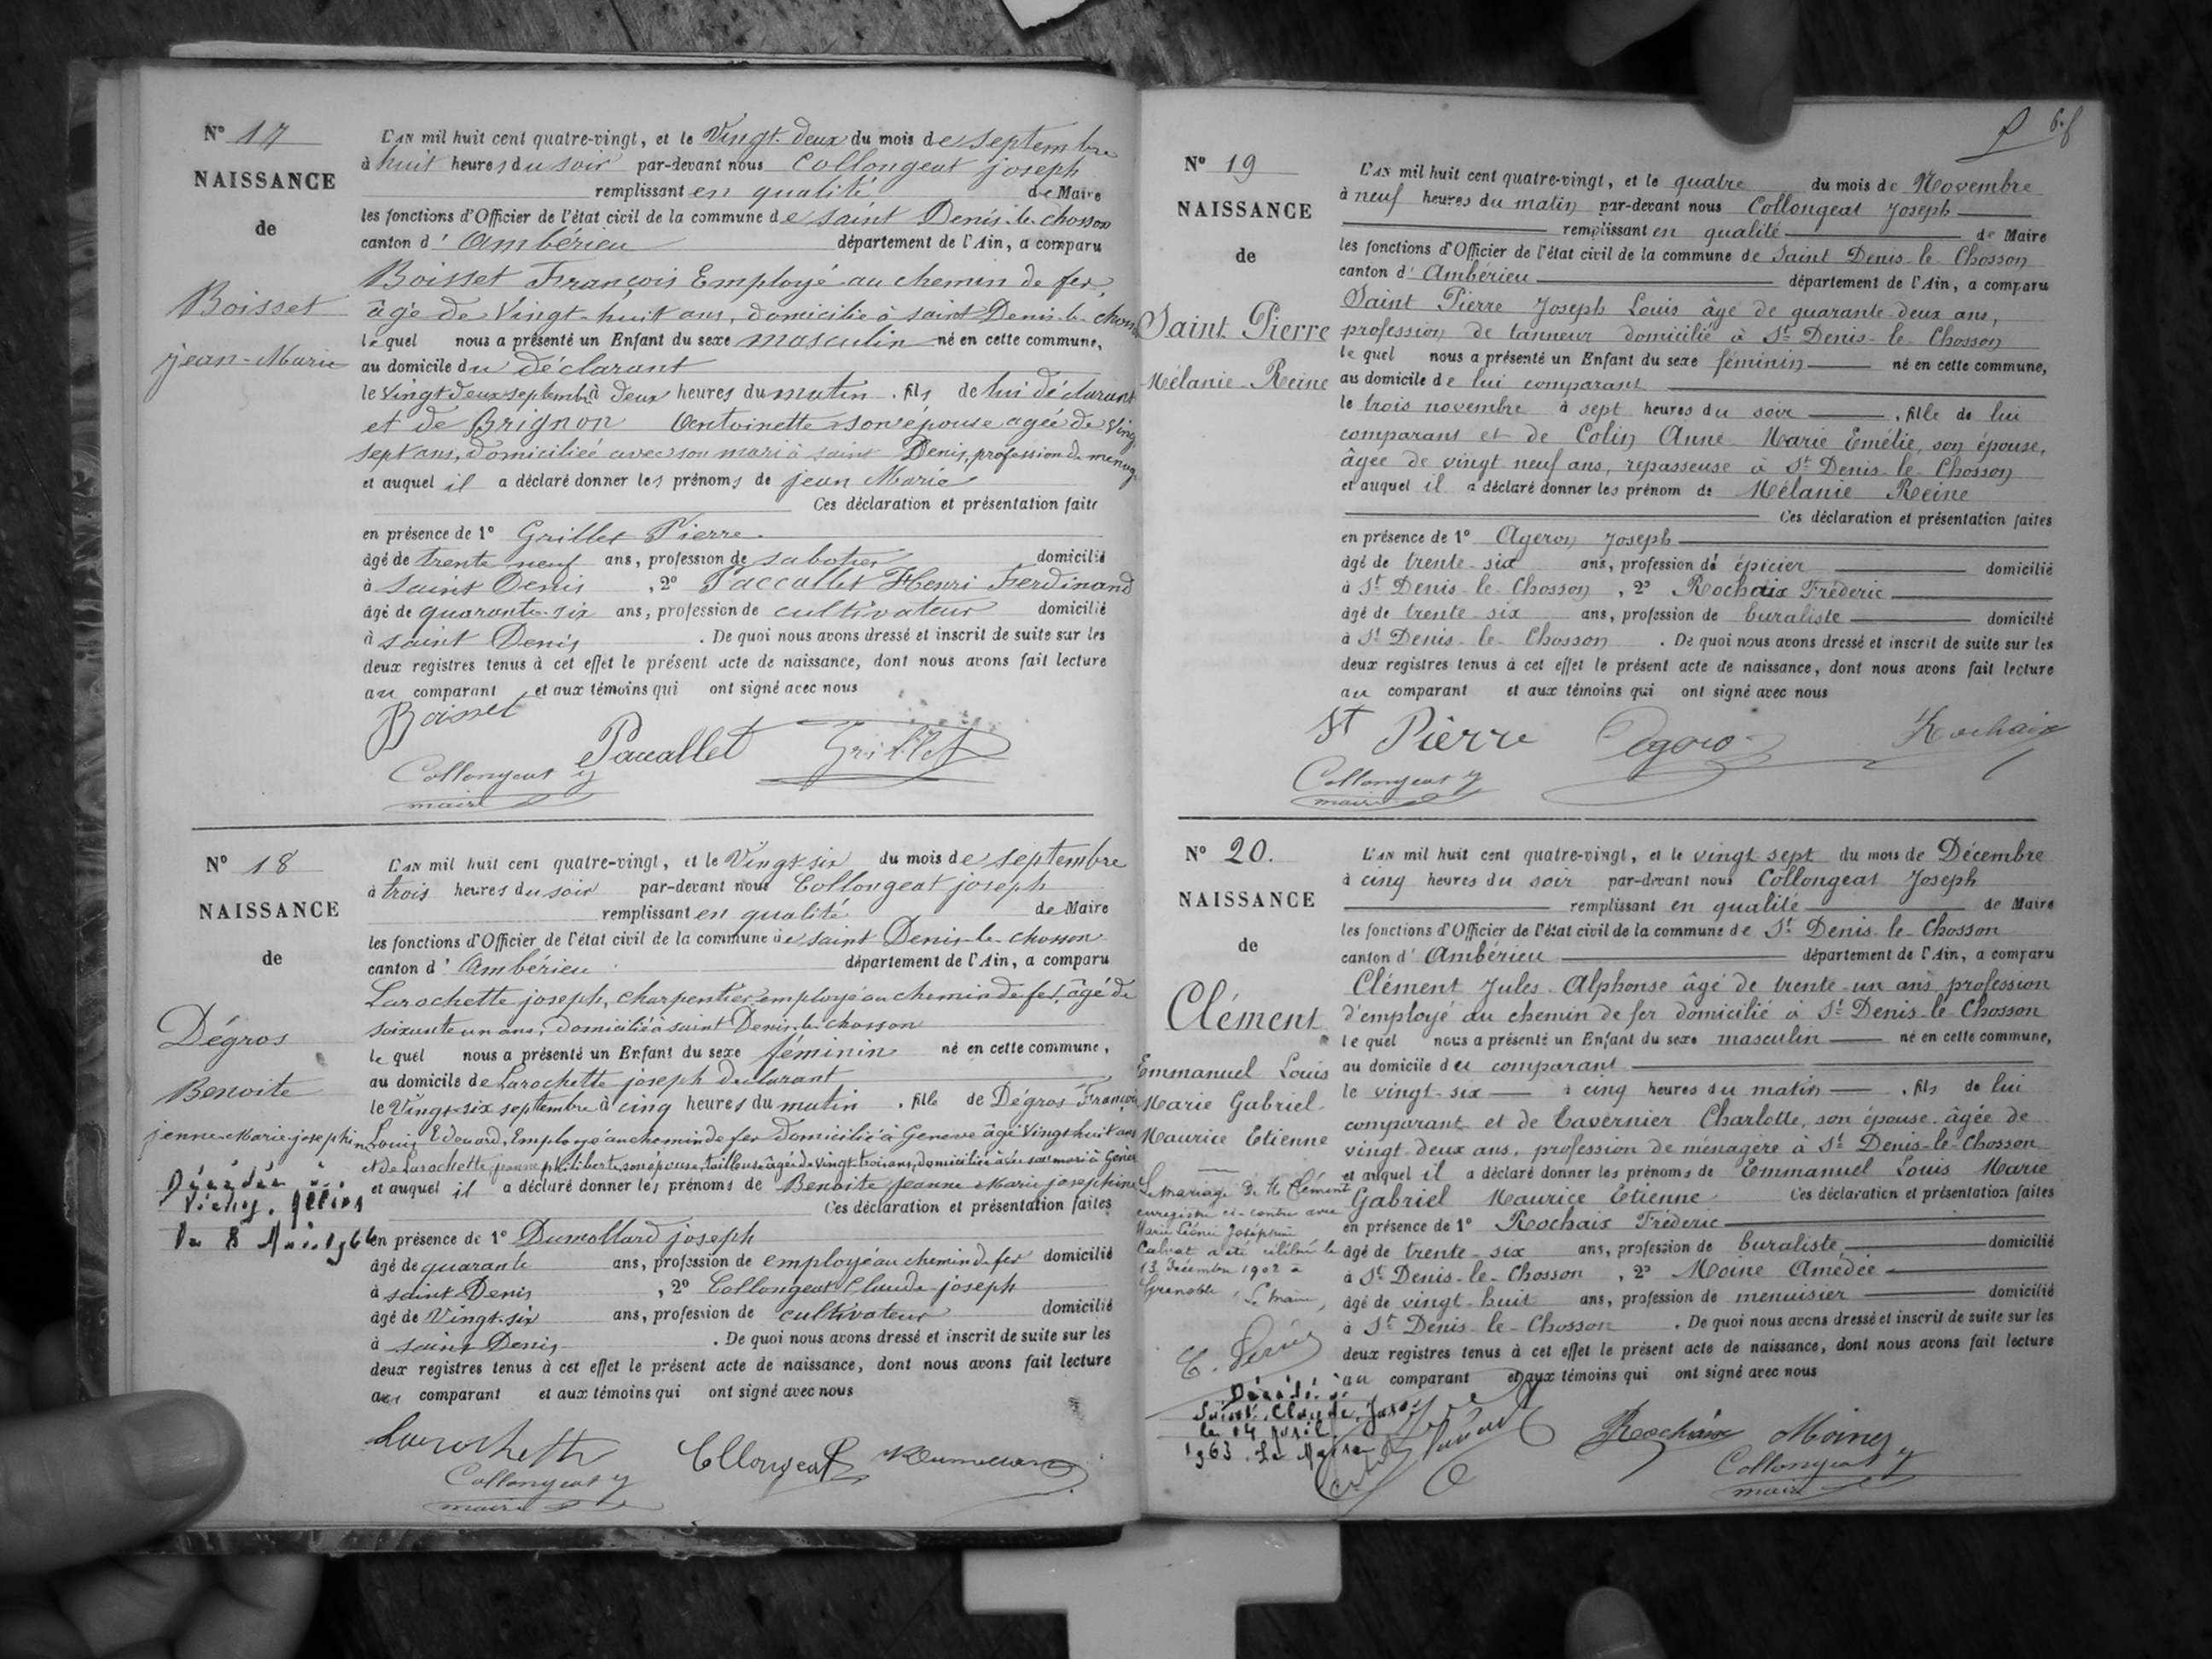 N° 17
NAISSANCE
de
Boisset
jean-Marie
L'AN mil huit cent quatre-vingt, et le Vingt-deux du mois de septembre
à huit heures du soir par-devant nous Collongeat joseph
remplissant en qualité de Maire
les fonctions d'Officier de l'état civil de la commune de saint Denis-le-chosson
canton d'Ambérieu département de l'Ain, a comparu
Boisset François Employé au chemin de fer,
âgé de Vingt-huit ans, domicilié à saint Denis-le-chosson
lequel nous a présenté un Enfant du sexe masculin né en cette commune,
au domicile du déclarant
le vingt deux septembre à deux heures du matin, fils de lui déclarant
et de Brignon Antoinette son épouse agée de Vingt
sept ans, domiciliée avec son mari à saint Denis, profession de menag.
et auquel il a déclaré donner les prénoms de jean Marie
Ces déclaration et présentation faite
en présence de 1° Grillet Pierre
âgé de trente neuf ans, profession de sabotier domicilié
à saint Denis, 2° Paccallet Henri Ferdinand
âgé de quarante-six ans, profession de cultivateur domicilié
à saint Denis. De quoi nous avons dressé et inscrit de suite sur les
deux registres tenus à cet effet le présent acte de naissance, dont nous avons fait lecture
au comparant et aux témoins qui ont signé avec nous
Boisset
Paccallet Grillet
Collongeat J
maire
N° 18
NAISSANCE
de
Dégros
Benoite
jenne-Marie-josephine
Décédée à
Vichy, Allier
L'AN mil huit cent quatre-vingt, et le Vingt-six du mois de septembre
à trois heures du soir par-devant nous Collongeat joseph
remplissant en qualité de Maire
les fonctions d'Officier de l'état civil de la commune de saint Denis-le-chosson
canton d'Ambérieu département de l'Ain, a comparu
Larochette joseph, charpentier employé au chemin de fer, âgé de
soixante un ans, domicilié à saint Denis-le-chosson
lequel nous a présenté un Enfant du sexe féminin né en cette commune,
au domicile de Larochette joseph declarant
le Vingt-six septembre à cinq heures du matin, fille de Dégros François
Louis Edouard, Employé au chemin de fer domicilié à Geneve âgé Vingt huit ans
et de Larochette jeanne philiberte, son épouse, tailleuse âgée de vingt-trois ans, domiciliée avec son mari à Geneve
et auquel il a déclaré donner les prénoms de Benoite jeanne Marie josephine
Ces déclaration et présentation faites
en présence de 1° Dumollard joseph
âgé de quarante ans, profession de employé au chemin de fer domicilié
à saint Denis, 2° Collongeat Claude joseph
âgé de Vingt-six ans, profession de cultivateur domicilié
à saint Denis. De quoi nous avons dressé et inscrit de suite sur les
deux registres tenus à cet effet le présent acte de naissance, dont nous avons fait lecture
au comparant et aux témoins qui ont signé avec nous
Larochette
Collongeat Dumollard
Collongeat J
maire
N° 19
NAISSANCE
de
Saint Pierre
Mélanie-Reine
L'AN mil huit cent quatre-vingt, et le quatre du mois de Novembre
à neuf heures du matin par-devant nous Collongeat Joseph
remplissant en qualité de Maire
les fonctions d'Officier de l'état civil de la commune de Saint Denis-le-Chosson
canton d'Ambérieu département de l'Ain, a comparu
Saint Pierre Joseph Louis âgé de quarante-deux ans,
profession de tanneur domicilié à St Denis-le-Chosson
lequel nous a présenté un Enfant du sexe féminin né en cette commune,
au domicile de lui comparant
le trois novembre à sept heures du soir, fille de lui
comparant et de Colin Anne Marie Emélie, son épouse,
âgée de vingt neuf ans, repasseuse à St Denis-le-Chosson
et auquel il a déclaré donner les prénom de Mélanie Reine
Ces déclaration et présentation faites
en présence de 1° Ageron Joseph
âgé de trente-six ans, profession de épicier domicilié
à St Denis-le-Chosson, 2° Rochaix Fréderic
âgé de trente-six ans, profession de buraliste domicilié
à St Denis-le-Chosson. De quoi nous avons dressé et inscrit de suite sur les
deux registres tenus à cet effet le présent acte de naissance, dont nous avons fait lecture
au comparant et aux témoins qui ont signé avec nous
St Pierre Rochaix
Collongeat J
maire
N° 20.
NAISSANCE
de
Clément
Emmanuel Louis
Marie Gabriel
Maurice Etienne
Le mariage de M. Clément
enregistré ci-contre avec
Marie Léonie Joséphine
Calvat a été célébré le
13 Décembre 1902 à
Grenoble, Le maire,
Décédé à
Saint-Claude, Jura
le 14 Avril
1963. Le Maire
L'AN mil huit cent quatre-vingt, et le vingt sept du mois de Décembre
à cinq heures du soir par-devant nous Collongeat Joseph
remplissant en qualité de Maire
les fonctions d'Officier de l'état civil de la commune de St Denis-le-Chosson
canton d'Ambérieu département de l'Ain, a comparu
Clément Jules Alphonse âgé de trente-un ans, profession
d'employé au chemin de fer domicilié à St Denis-le-Chosson
lequel nous a présenté un Enfant du sexe masculin né en cette commune,
au domicile du comparant
le vingt-six à cinq heures du matin, fils de lui
comparant et de Tavernier Charlotte, son épouse âgée de
vingt deux ans, profession de ménagère à St Denis-le-Chosson
et auquel il a déclaré donner les prénoms de Emmanuel Louis Marie
Gabriel Maurice Etienne Ces déclaration et présentation faites
en présence de 1° Rochaix Fréderic
âgé de trente-six ans, profession de buraliste domicilié
à St Denis-le-Chosson, 2° Moine Amédée
âgé de vingt-huit ans, profession de menuisier domicilié
à St Denis-le-Chosson. De quoi nous avons dressé et inscrit de suite sur les
deux registres tenus à cet effet le présent acte de naissance, dont nous avons fait lecture
au comparant et aux témoins qui ont signé avec nous
Rochaix Moine
Collongeat J
maire